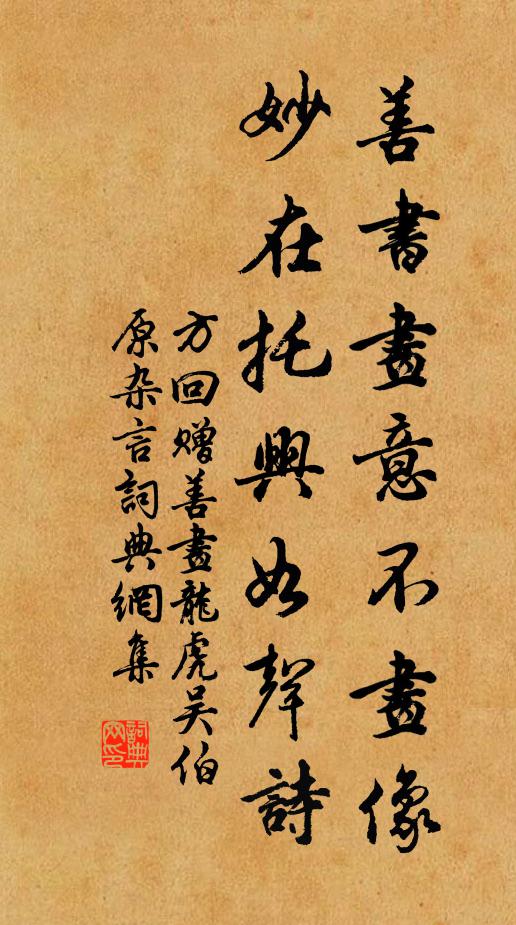 善書畫意不畫像
妙在托興如聲詩
方回赠善畫龍虎吴伯
原杂言詞典網集
詞典网印